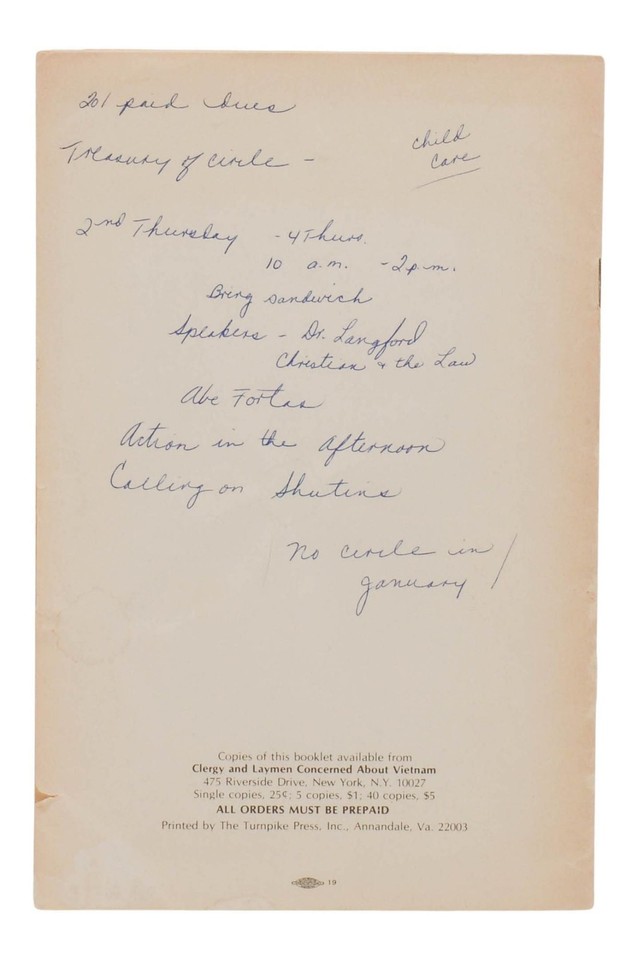 201 paid dues
Treasury of circle -
child
care
2nd Thursday - 4 Thurs.
10 a.m. - 2 p.m.
Bring sandwich
Speakers - Dr. Langford
Christian & the Law
Abe Fortas
Action in the afternoon
Calling on Shutins
No circle in
January
Copies of this booklet available from
Clergy and Laymen Concerned About Vietnam
475 Riverside Drive, New York, N.Y. 10027
Single copies, 25¢; 5 copies, $1; 40 copies, $5
ALL ORDERS MUST BE PREPAID
Printed by The Turnpike Press, Inc., Annandale, Va. 22003
19